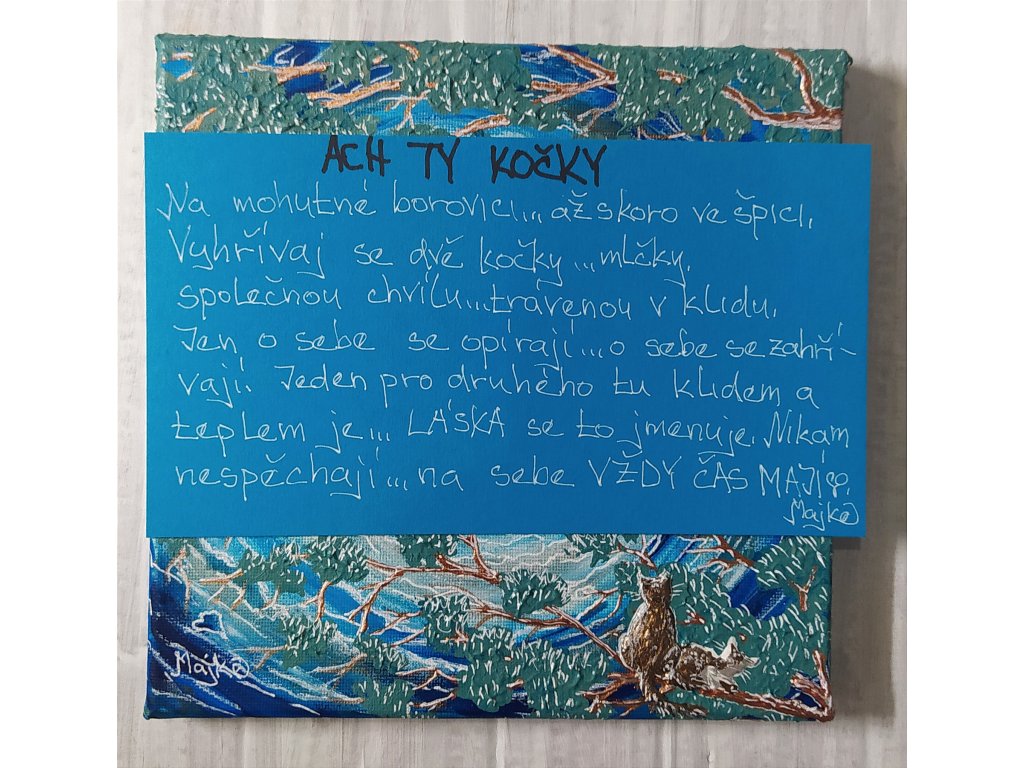 ACH TY KOČKY
Na mohutné borovici... až skoro ve špici.
Vyhřívaj se dvě kočky... mlčky.
společnou chvilu... trávenou v klidu.
Jen o sebe se opírají... o sebe se zahří-
vají. Jeden pro druhého tu klidem a
teplem je... LÁSKA se to jmenuje. Nikam
nespěchají... na sebe VŽDY ČAS MAJÍ
Majka
Majka